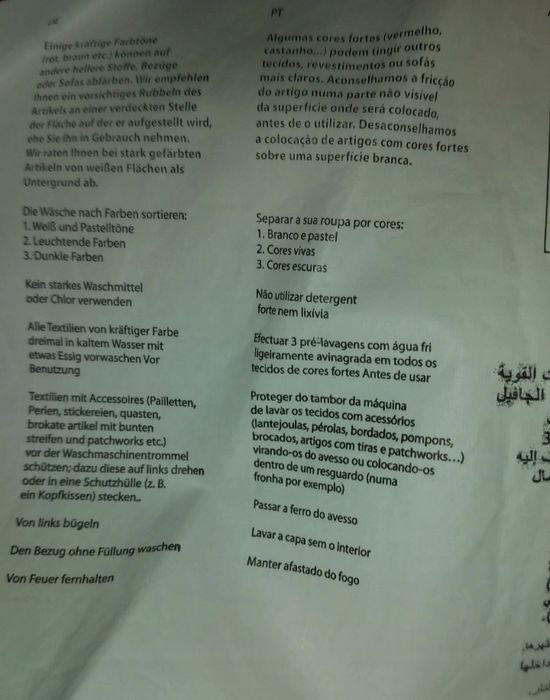 DE
Einige kräftige Farbtöne
(rot, braun etc.) können auf
andere hellere Stoffe, Bezüge
oder Sofas abfärben. Wir empfehlen
Ihnen ein vorsichtiges Rubbeln des
Artikels an einer verdeckten Stelle
der Fläche auf der er aufgestellt wird,
ehe Sie ihn in Gebrauch nehmen.
Wir raten Ihnen bei stark gefärbten
Artikeln von weißen Flächen als
Untergrund ab.
Die Wäsche nach Farben sortieren:
1. Weiß und Pastelltöne
2. Leuchtende Farben
3. Dunkle Farben
Kein starkes Waschmittel
oder Chlor verwenden
Alle Textilien von kräftiger Farbe
dreimal in kaltem Wasser mit
etwas Essig vorwaschen Vor
Benutzung
Textilien mit Accessoires (Pailletten,
Perlen, stickereien, quasten,
brokate artikel mit bunten
streifen und patchworks etc.)
vor der Waschmaschinentrommel
schützen; dazu diese auf links drehen
oder in eine Schutzhülle (z. B.
ein Kopfkissen) stecken..
Von links bügeln
Den Bezug ohne Füllung waschen
Von Feuer fernhalten
PT
Algumas cores fortes (vermelho,
castanho...) podem tingir outros
tecidos, revestimentos ou sofás
mais claros. Aconselhamos a fricção
do artigo numa parte não visível
da superfície onde será colocado,
antes de o utilizar. Desaconselhamos
a colocação de artigos com cores fortes
sobre uma superfície branca.
Separar a sua roupa por cores:
1. Branco e pastel
2. Cores vivas
3. Cores escuras
Não utilizar detergent
forte nem lixívia
Efectuar 3 pré-lavagens com água fri
ligeiramente avinagrada em todos os
tecidos de cores fortes Antes de usar
Proteger do tambor da máquina
de lavar os tecidos com acessórios
(lantejoulas, pérolas, bordados, pompons,
brocados, artigos com tiras e patchworks...)
virando-os do avesso ou colocando-os
dentro de um resguardo (numa
fronha por exemplo)
Passar a ferro do avesso
Lavar a capa sem o interior
Manter afastado do fogo
القوية
3
إليه